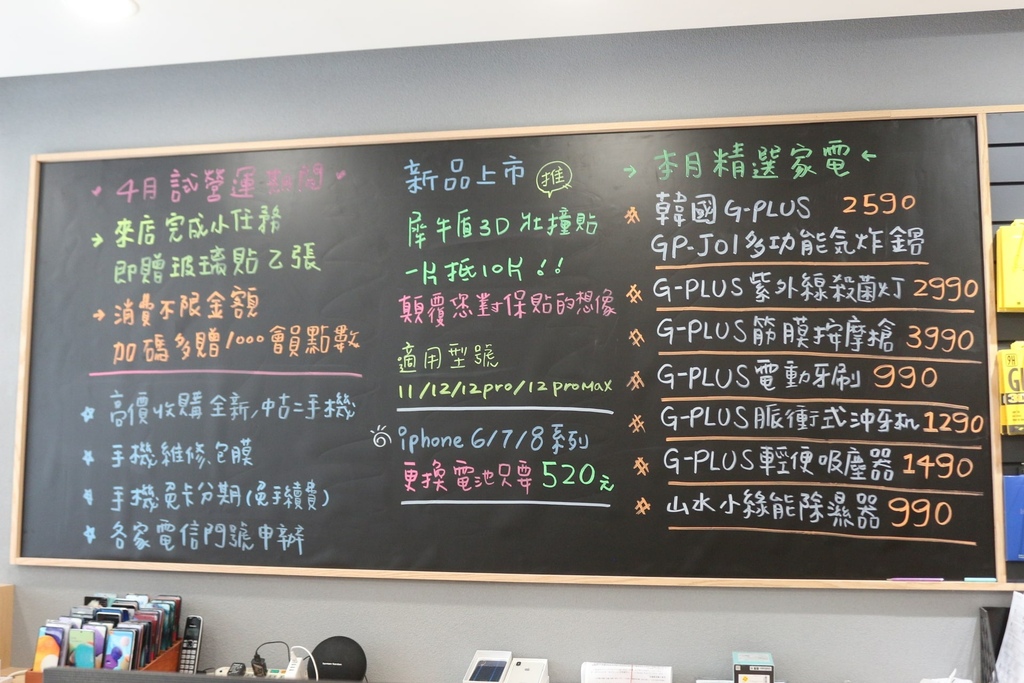 4月試營運期間
來店完成小任務
即贈玻璃貼乙張
消費不限金額
加碼多贈1000會員點數
高價收購全新/中古二手機
手機維修、包膜
手機免卡分期(免手續費)
各家電信門號申辦
新品上市 推
犀牛盾3D壯撞貼
一片抵10片!!
顛覆您對保貼的想像
適用型號
11/12/12pro/12proMAX
iphone 6/7/8系列
更換電池只要520元
本月精選家電
韓國G-PLUS 2590
GP-J01多功能氣炸鍋
G-PLUS紫外線殺菌灯 2990
G-PLUS筋膜按摩槍 3990
G-PLUS電動牙刷 990
G-PLUS脈衝式沖牙机 1290
G-PLUS輕便吸塵器 1490
山水小綠能除濕器 990